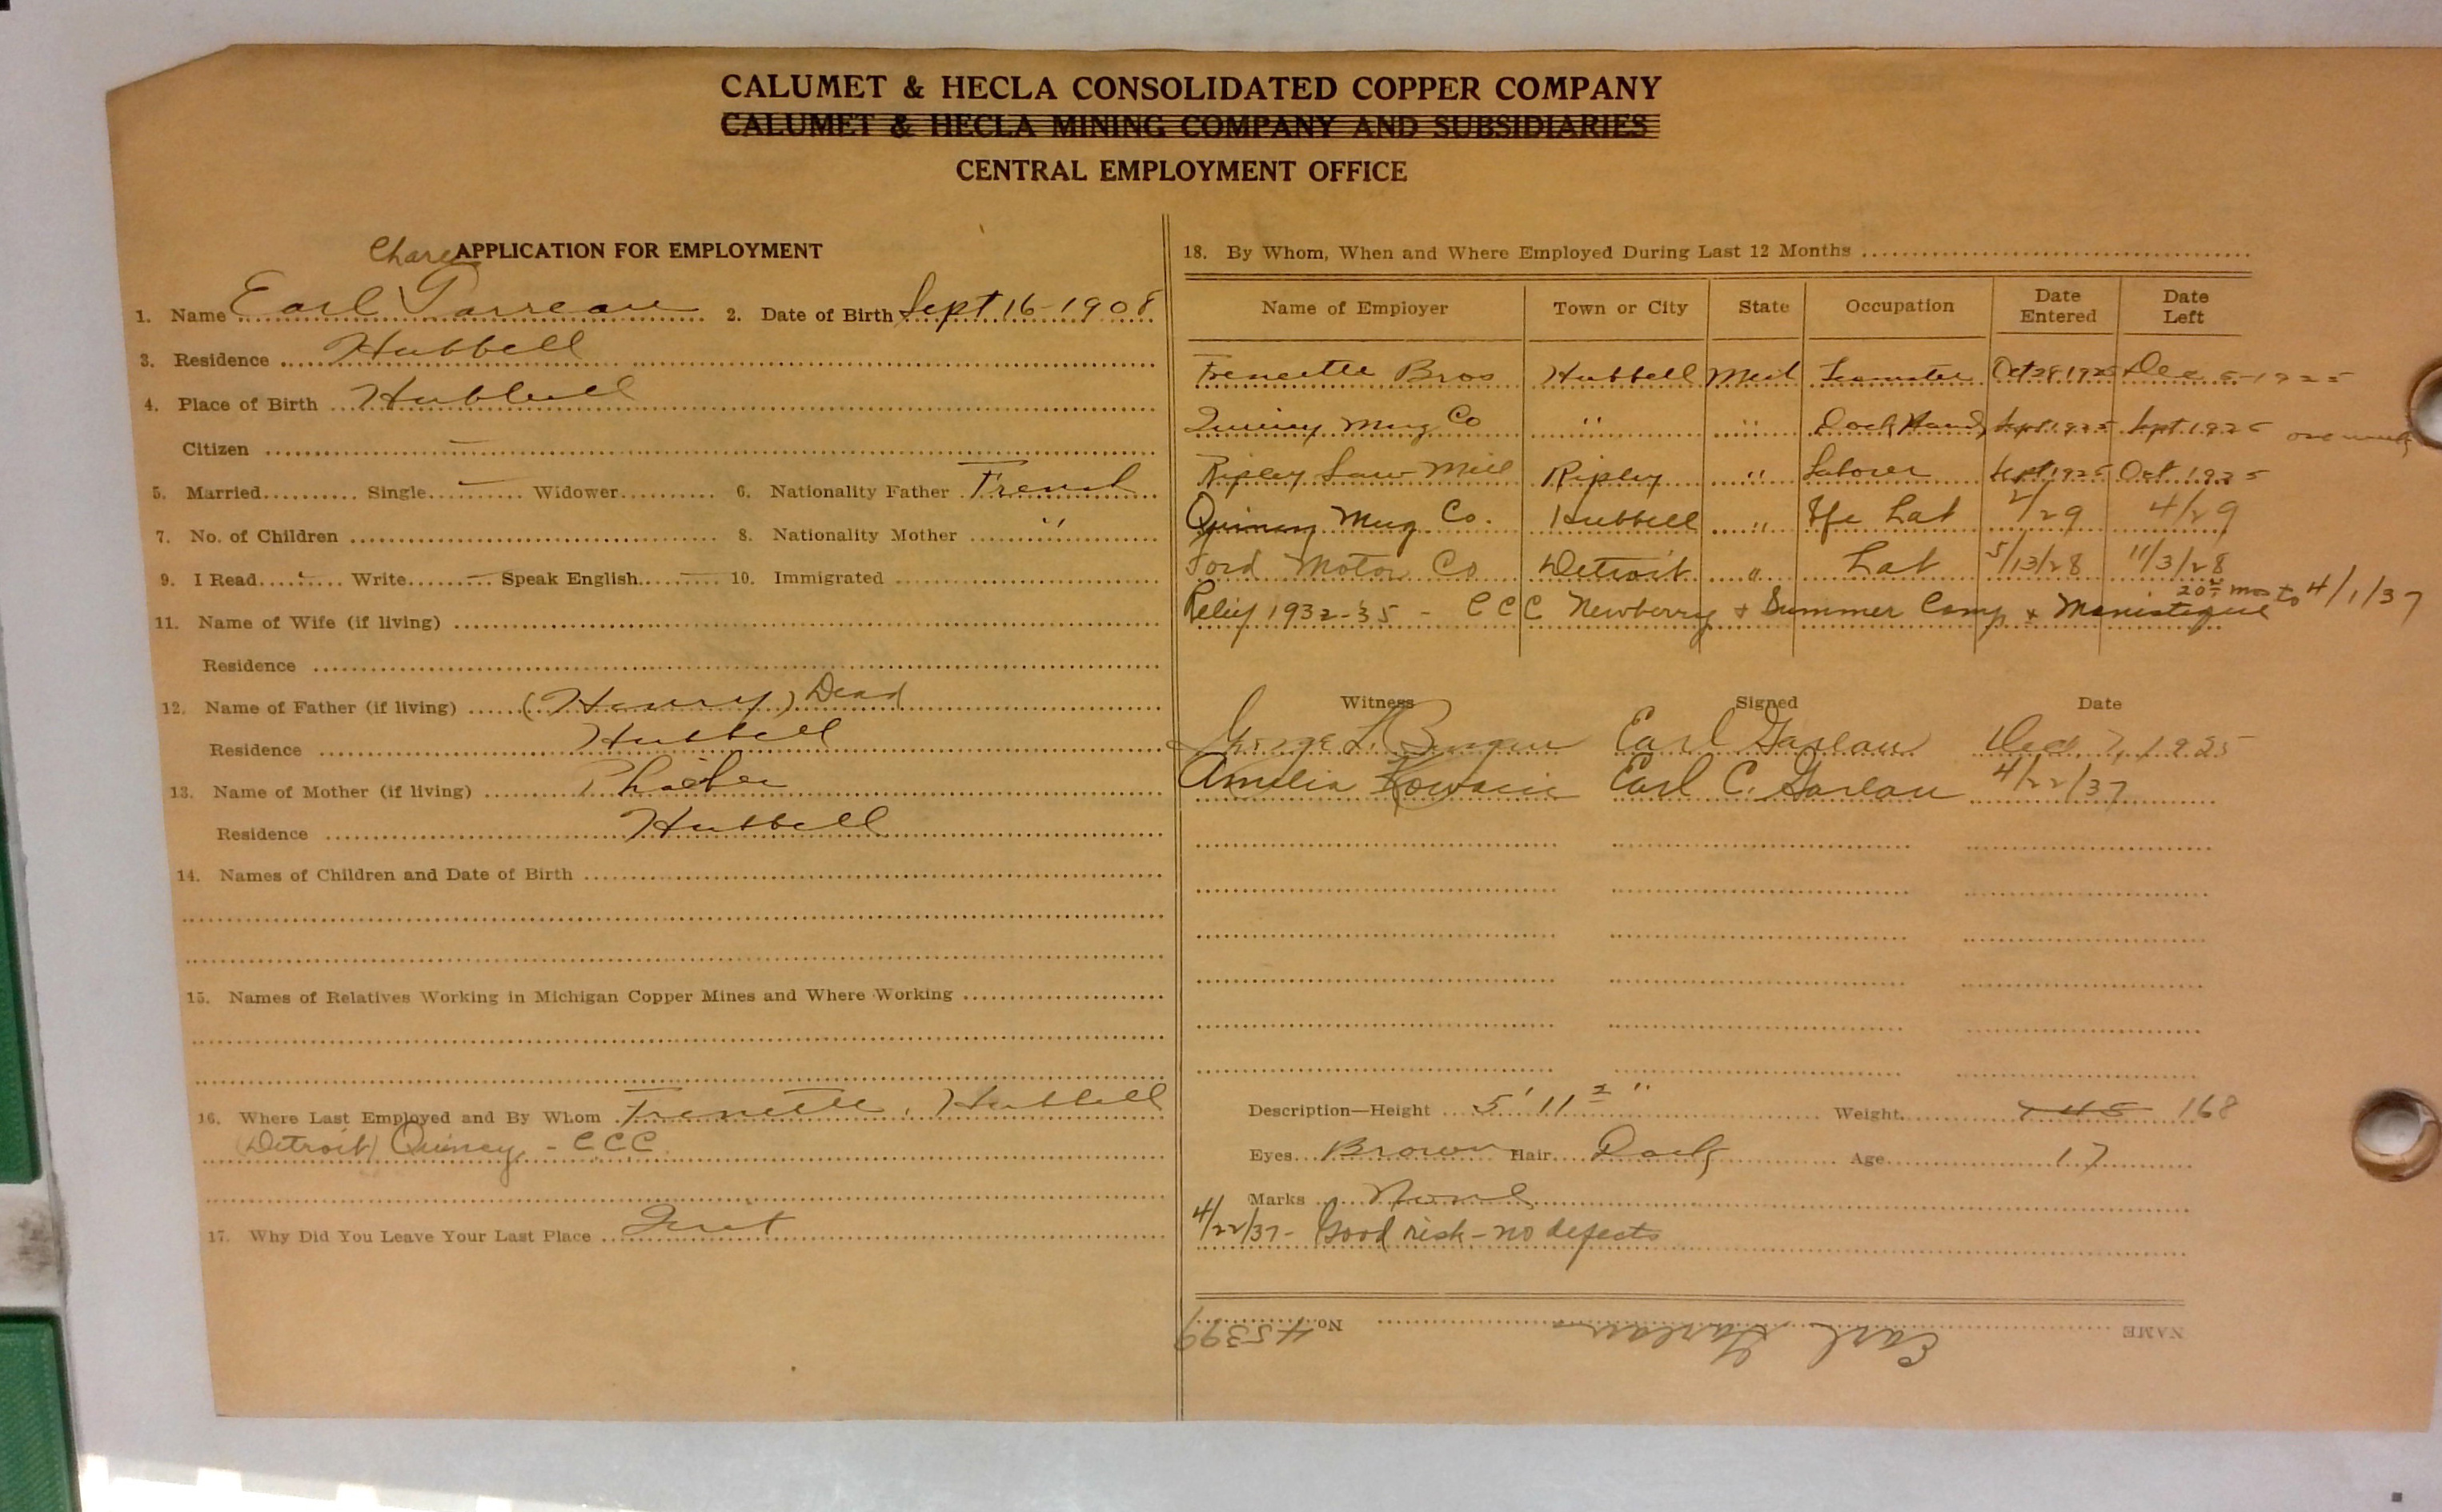 CALUMET & HECLA CONSOLIDATED COPPER COMPANY
CALUMET & HECLA MINING COMPANY AND SUBSIDIARIES
CENTRAL EMPLOYMENT OFFICE
APPLICATION FOR EMPLOYMENT
1. Name Earl 2. Date of Birth Sept 16-1908
3. Residence Hubbell
4. Place of Birth Hubbell
Citizen —
5. Married Single — Widower 6. Nationality Father French
7. No. of Children 8. Nationality Mother "
9. I Read Write — Speak English — 10. Immigrated
11. Name of Wife (if living)
Residence
12. Name of Father (if living) (Henry) Dead
Residence Hubbell
13. Name of Mother (if living) Phoebe
Residence Hubbell
14. Names of Children and Date of Birth
15. Names of Relatives Working in Michigan Copper Mines and Where Working
16. Where Last Employed and By Whom Frenette, Hubbell
(Detroit) Quincy, - CCC
17. Why Did You Leave Your Last Place
18. By Whom, When and Where Employed During Last 12 Months
Name of Employer Town or City State Occupation Date Entered Date Left
Frenette Bros Hubbell Mich Teamster Oct 28 1925 Dec 5-1925
Quincy Mng Co " " Dock Hand Sept 1925 Sept 1925 one week
Ripley Saw Mill Ripley " Laborer Sept 1925 Oct 1925
Quincy Mng Co. Hubbell " Sfc Lab 2/29 4/29
Ford Motor Co Detroit " Lab 5/13/28 11/3/28
Relief 1932-35 - CCC Newberry & Summer Camp & Manistique 20 mos to 4/1/37
Witness Signed Date
George L. Earl Gareau Dec 7, 1925
Amelia Earl C. Gareau 4/22/37
Description—Height 5' 11 2 " Weight 145 168
Eyes Brown Hair Dark Age 17
Marks None
4/22/37- Good risk - no defects
NAME Earl Gareau No. 45399